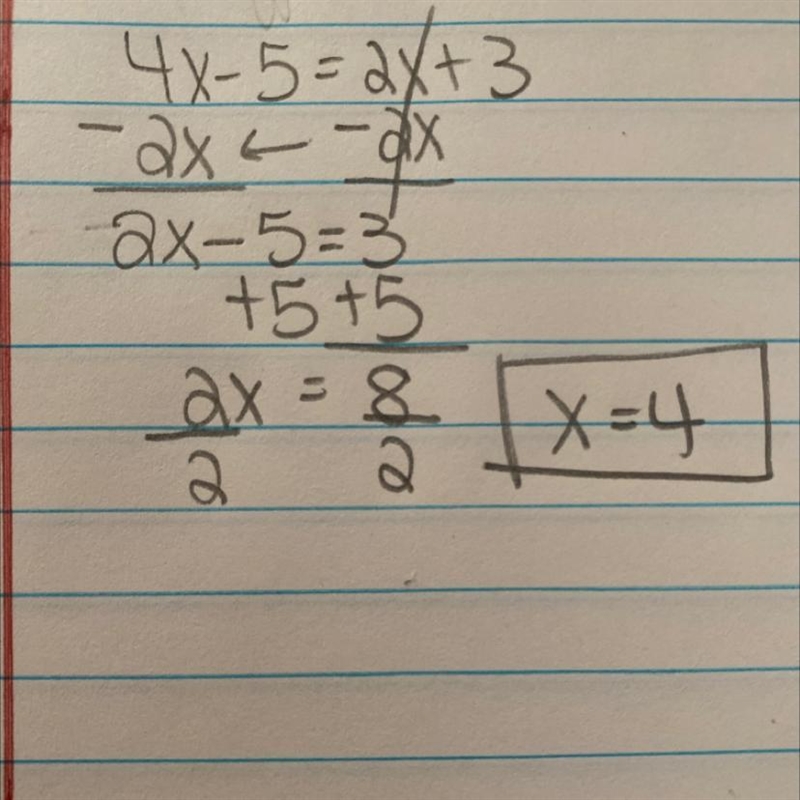 4x-5=2x+3
-2x ← -2x
2x-5=3
+5 +5
2x = 8
2 2
x=4